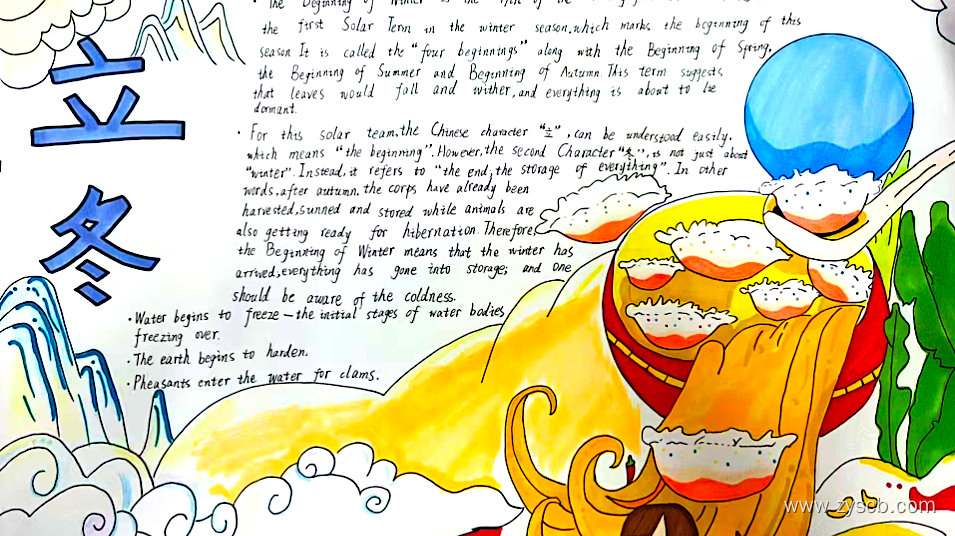 立冬
· The Beginning of Winter is the 19th of the
the first Solar Term in the winter season.which marks the beginning of this
season. It is called the "four beginnings" along with the Beginning of Spring,
the Beginning of Summer and Beginning of Autumn. This term suggests
that leaves would fall and wither, and everything is about to be
dormant.
· For this solar team, the Chinese character "立", can be understood easily.
which means "the beginning". However, the second Character "冬", is not just about
"winter". Instead, it refers to "the end, the storage of everything". In other
words, after autumn, the corps have already been
harvested, sunned and stored while animals are
also getting ready for hibernation. Therefore,
the Beginning of Winter means that the winter has
arrived, everything has gone into storage; and one
should be aware of the coldness.
· Water begins to freeze — the initial stages of water bodies
freezing over.
· The earth begins to harden.
· Pheasants enter the water for clams.
www.zyscb.com